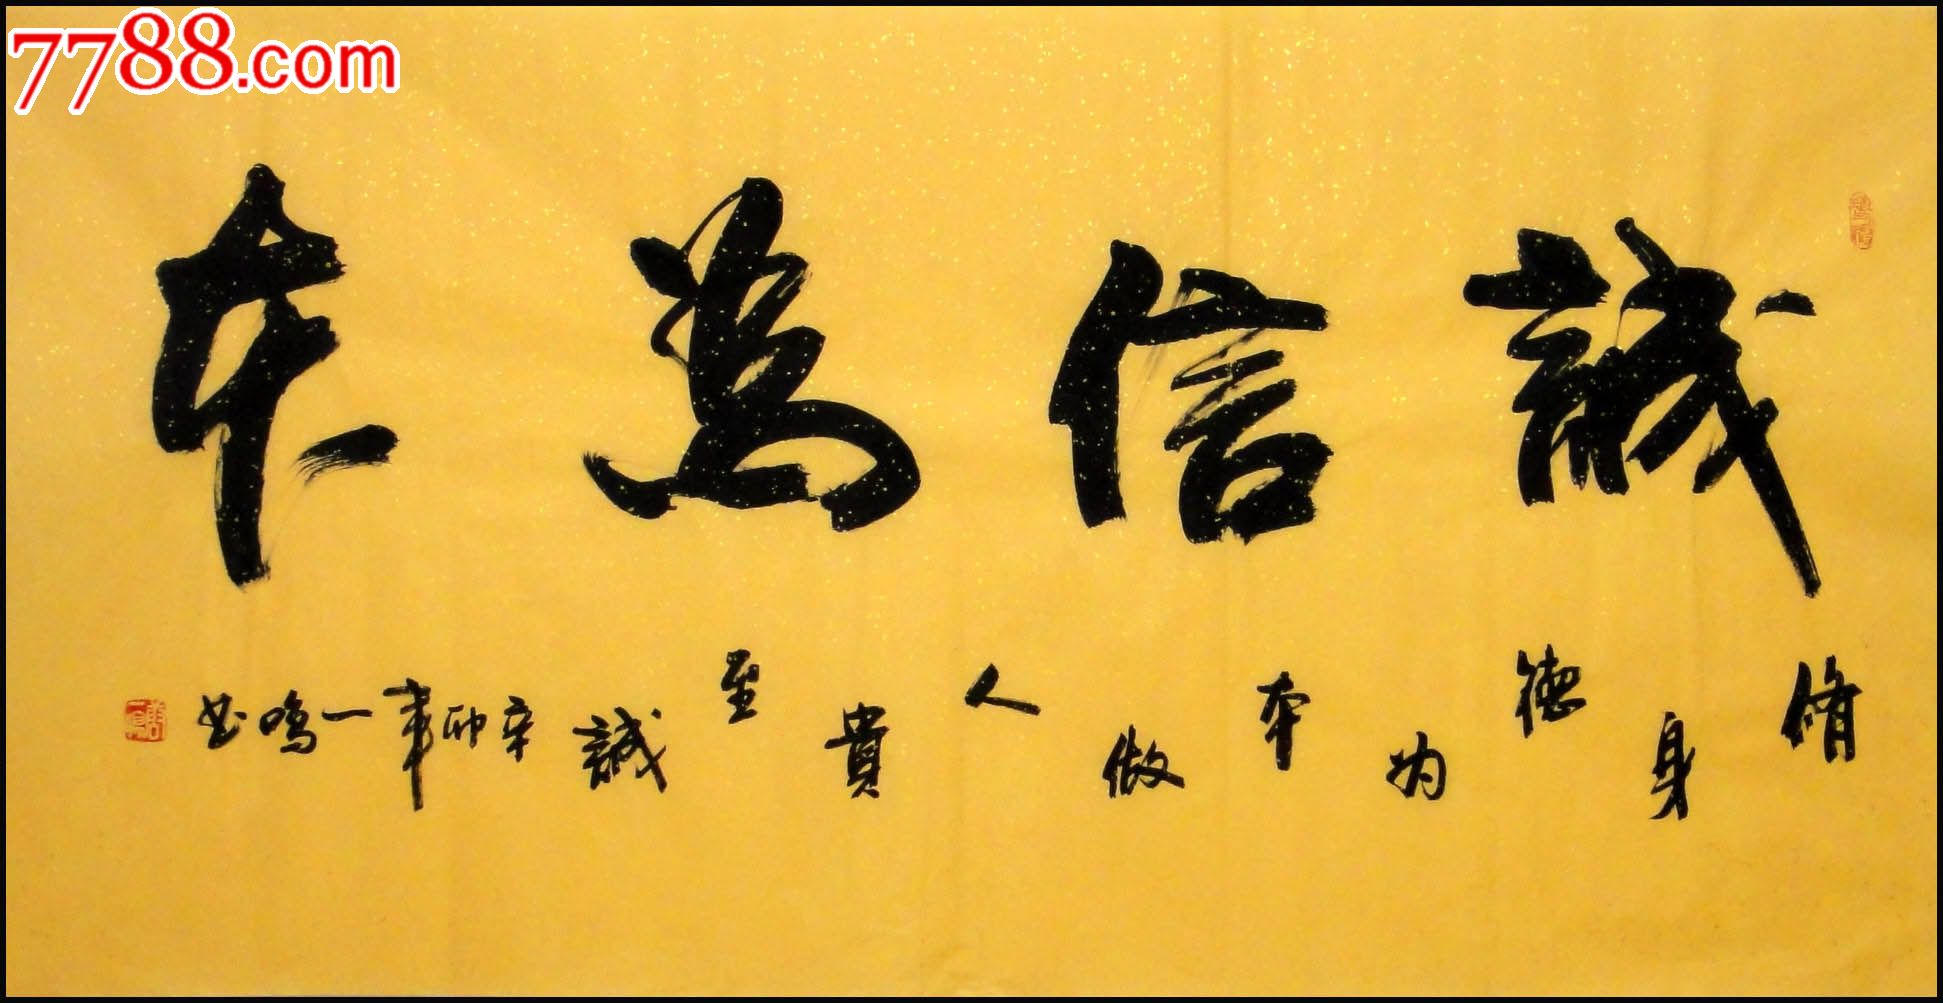 7788.com
誠信為本
脩身德为本做人貴至誠
辛卯年一鳴书